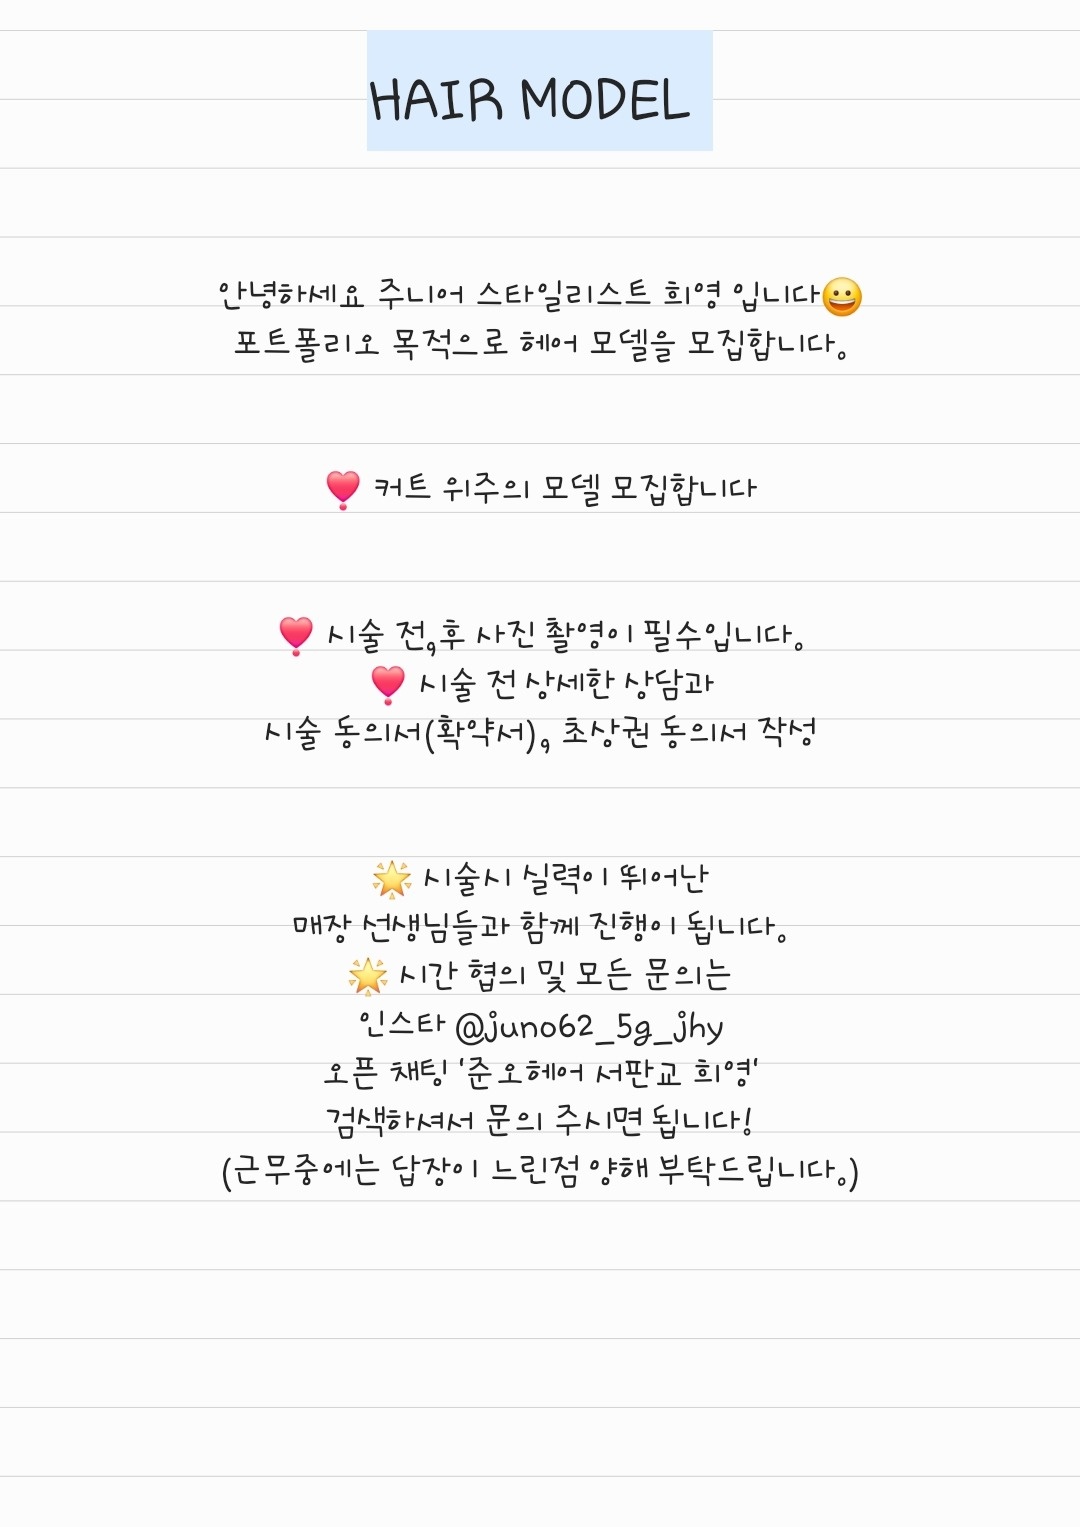 HAIR MODEL
안녕하세요 주니어 스타일리스트 희영 입니다😀
포트폴리오 목적으로 헤어 모델을 모집합니다.
❣️ 커트 위주의 모델 모집합니다
❣️ 시술 전,후 사진 촬영이 필수입니다.
❣️ 시술 전 상세한 상담과
시술 동의서(확약서), 초상권 동의서 작성
🌟 시술시 실력이 뛰어난
매장 선생님들과 함께 진행이 됩니다.
🌟 시간 협의 및 모든 문의는
인스타 @juno62_5g_jhy
오픈 채팅 '준오헤어 서판교 희영'
검색하셔서 문의 주시면 됩니다!
(근무중에는 답장이 느린점 양해 부탁드립니다.)